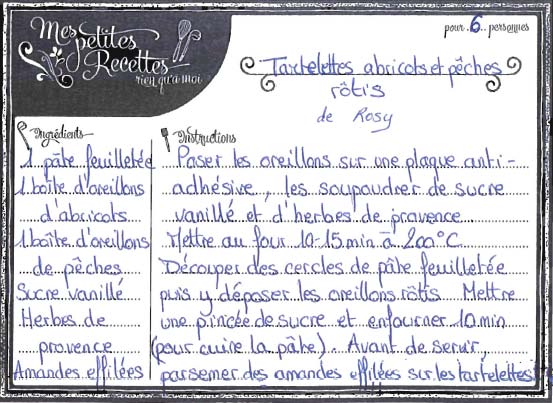 Mes petites Recettes
rien qu'à moi
pour 6 personnes
Tartelettes abricots et pêches
rôtis
de Rosy
Ingrédients
1 pâte feuilletée
1 boîte d'oreillons
d'abricots
1 boîte d'oreillons
de pêches
Sucre vanillé
Herbes de
provence
Amandes effilées
Instructions
Poser les oreillons sur une plaque anti-
adhésive, les soupoudrer de sucre
vanillé et d'herbes de provence
Mettre au four 10-15 min à 200°C
Découper des cercles de pâte feuilletée
puis y déposer les oreillons rôtis Mettre
une pincée de sucre et enfourner 10 min
(pour cuire la pâte). Avant de servir,
parsemer des amandes effilées sur les tartelettes